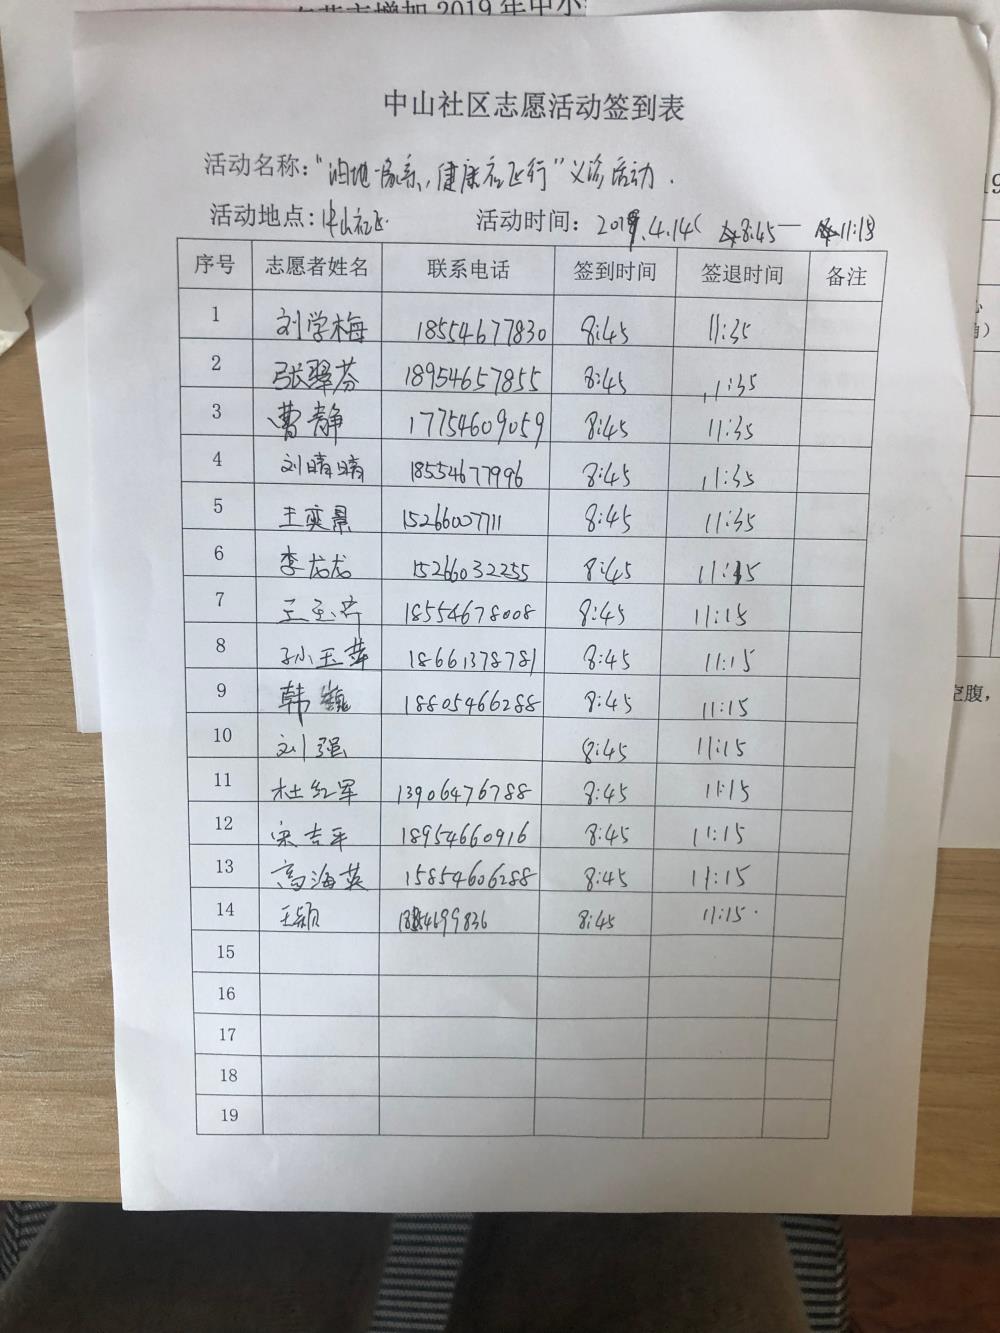 中山社区志愿活动签到表
活动名称：“油地一家亲，健康在飞行”义诊活动.
活动地点：中山社区 活动时间：2019.4.14 8:45—11:15
序号 志愿者姓名 联系电话 签到时间 签退时间 备注
1 刘学梅 18554677830 8:45 11:35
2 张翠芬 18954657855 8:45 11:35
3 曹静 17754609059 8:45 11:35
4 刘晴晴 18554677996 8:45 11:35
5 王奕景 15266007711 8:45 11:35
6 李龙龙 15266032255 8:45 11:15
7 王 18554678008 8:45 11:15
8 孙玉萍 18661378781 8:45 11:15
9 韩巍 18805466288 8:45 11:15
10 刘强 8:45 11:15
11 杜红军 13906476788 8:45 11:15
12 宋吉平 18954660916 8:45 11:15
13 高海英 15854606288 8:45 11:15
14 王颖 8:45 11:15
15
16
17
18
19
空腹，